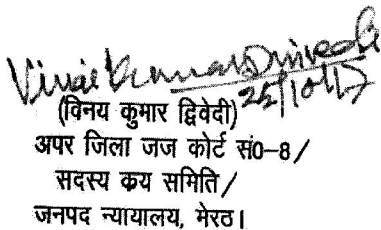 Vinai Kumar Dwivedi
25/10/17
(विनय कुमार द्विवेदी)
अपर जिला जज कोर्ट सं0-8/
सदस्य कय समिति/
जनपद न्यायालय, मेरठ।